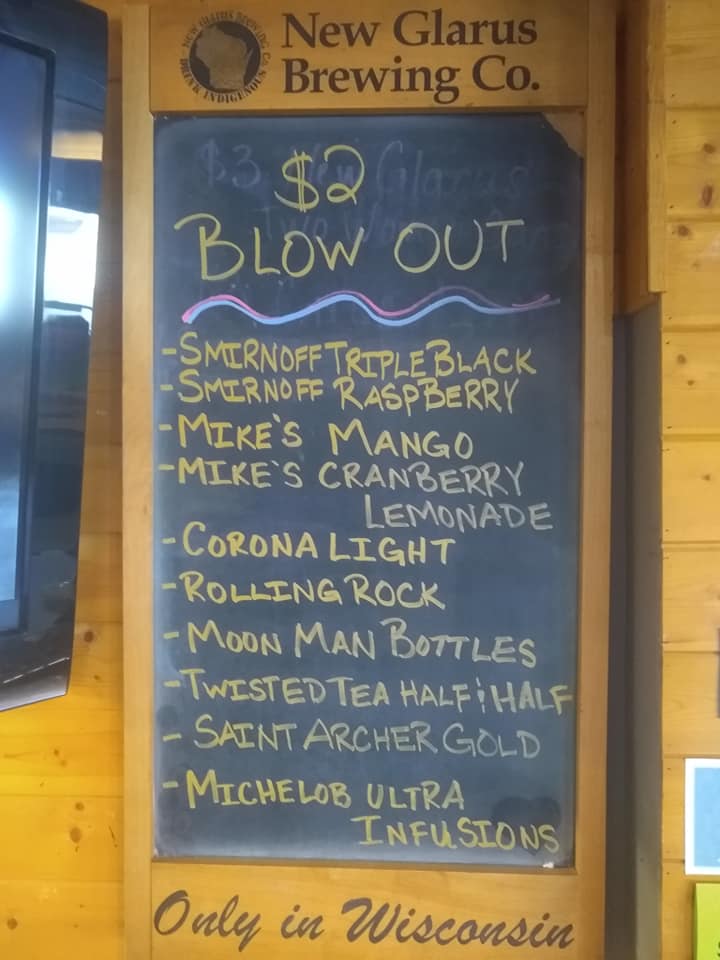 NEW GLARUS BREWING CO.
DRINK INDIGENOUS
New Glarus
Brewing Co.
$3 New Glarus
$2
BLOW OUT
-SMIRNOFF TRIPLE BLACK
-SMIRNOFF RASPBERRY
-MIKE'S MANGO
-MIKE'S CRANBERRY
LEMONADE
-CORONA LIGHT
-ROLLING ROCK
-MOON MAN BOTTLES
-TWISTED TEA HALF & HALF
- SAINT ARCHER GOLD
-MICHELOB ULTRA
INFUSIONS
Only in Wisconsin